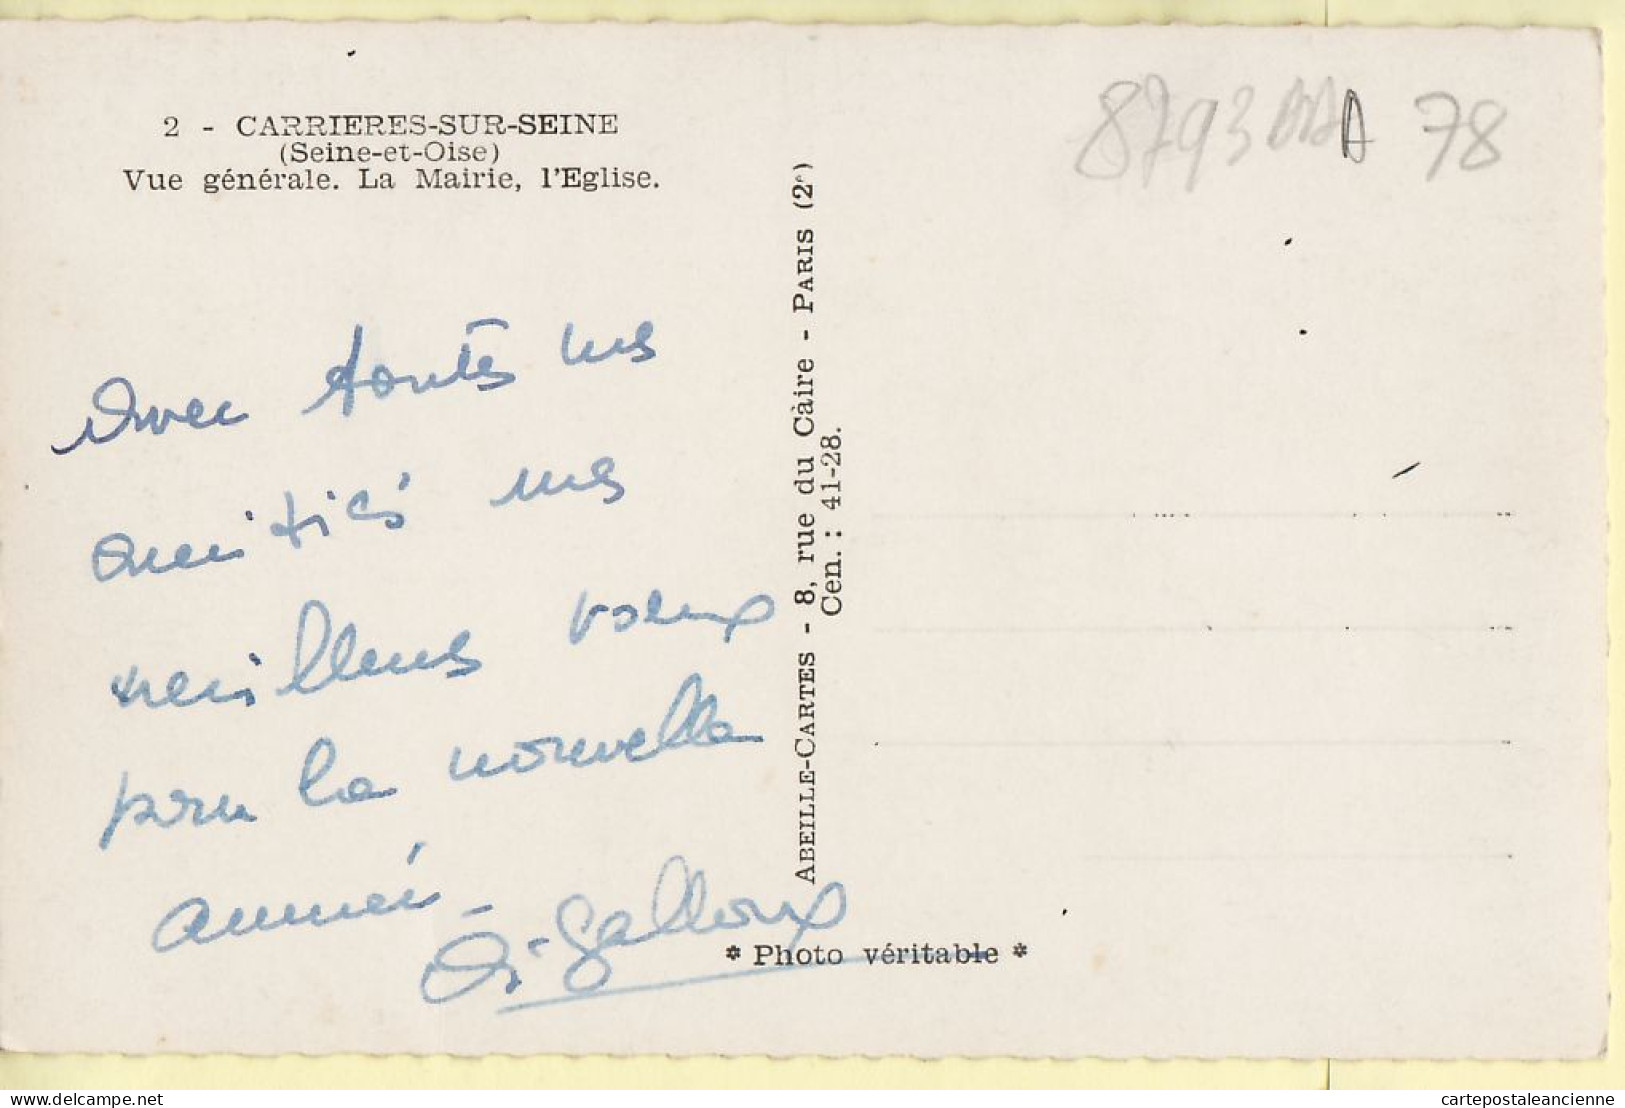 2 - CARRIERES-SUR-SEINE
(Seine-et-Oise)
Vue générale. La Mairie, l'Eglise.
Avec toutes mes
amitiés mes
meilleurs voeux
pour la nouvelle
année -
Galloux
ABEILLE-CARTES - 8, rue du Caire - PARIS (2e)
Cen. : 41-28.
* Photo véritable *
8793 78
delcampe.net
cartepostaleancienne